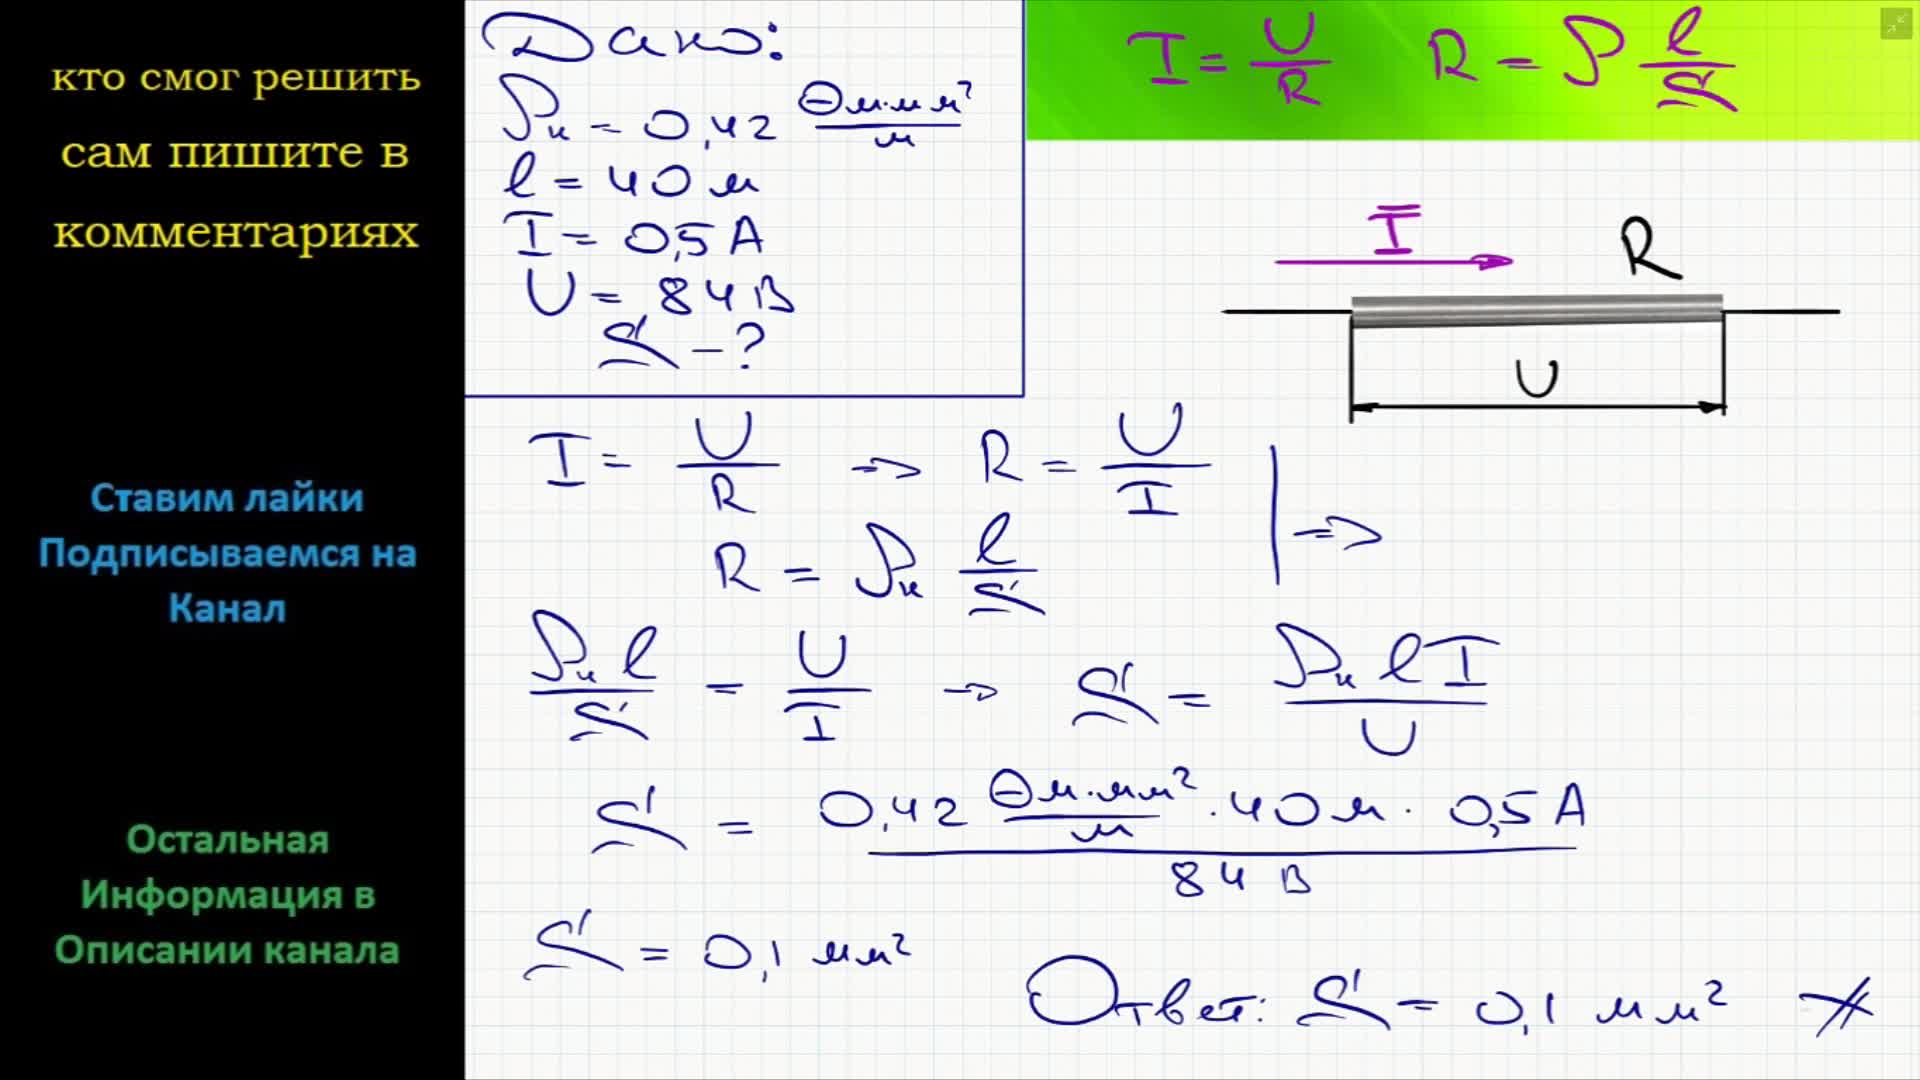 кто смог решить
сам пишите в
комментариях
Ставим лайки
Подписываемся на
Канал
Остальная
Информация в
Описании канала
Дано:
ρн = 0,42 Ом·мм²/м
l = 40 м
I = 0,5 А
U = 84 В
S - ?
I = U/R R = ρ l/S
I R
U
I = U/R => R = U/I
R = ρн l/S | =>
ρн l/S = U/I -> S = ρн l I/U
S = 0,42 Ом·мм²/м · 40 м · 0,5 А / 84 В
S = 0,1 мм²
Ответ: S = 0,1 мм²